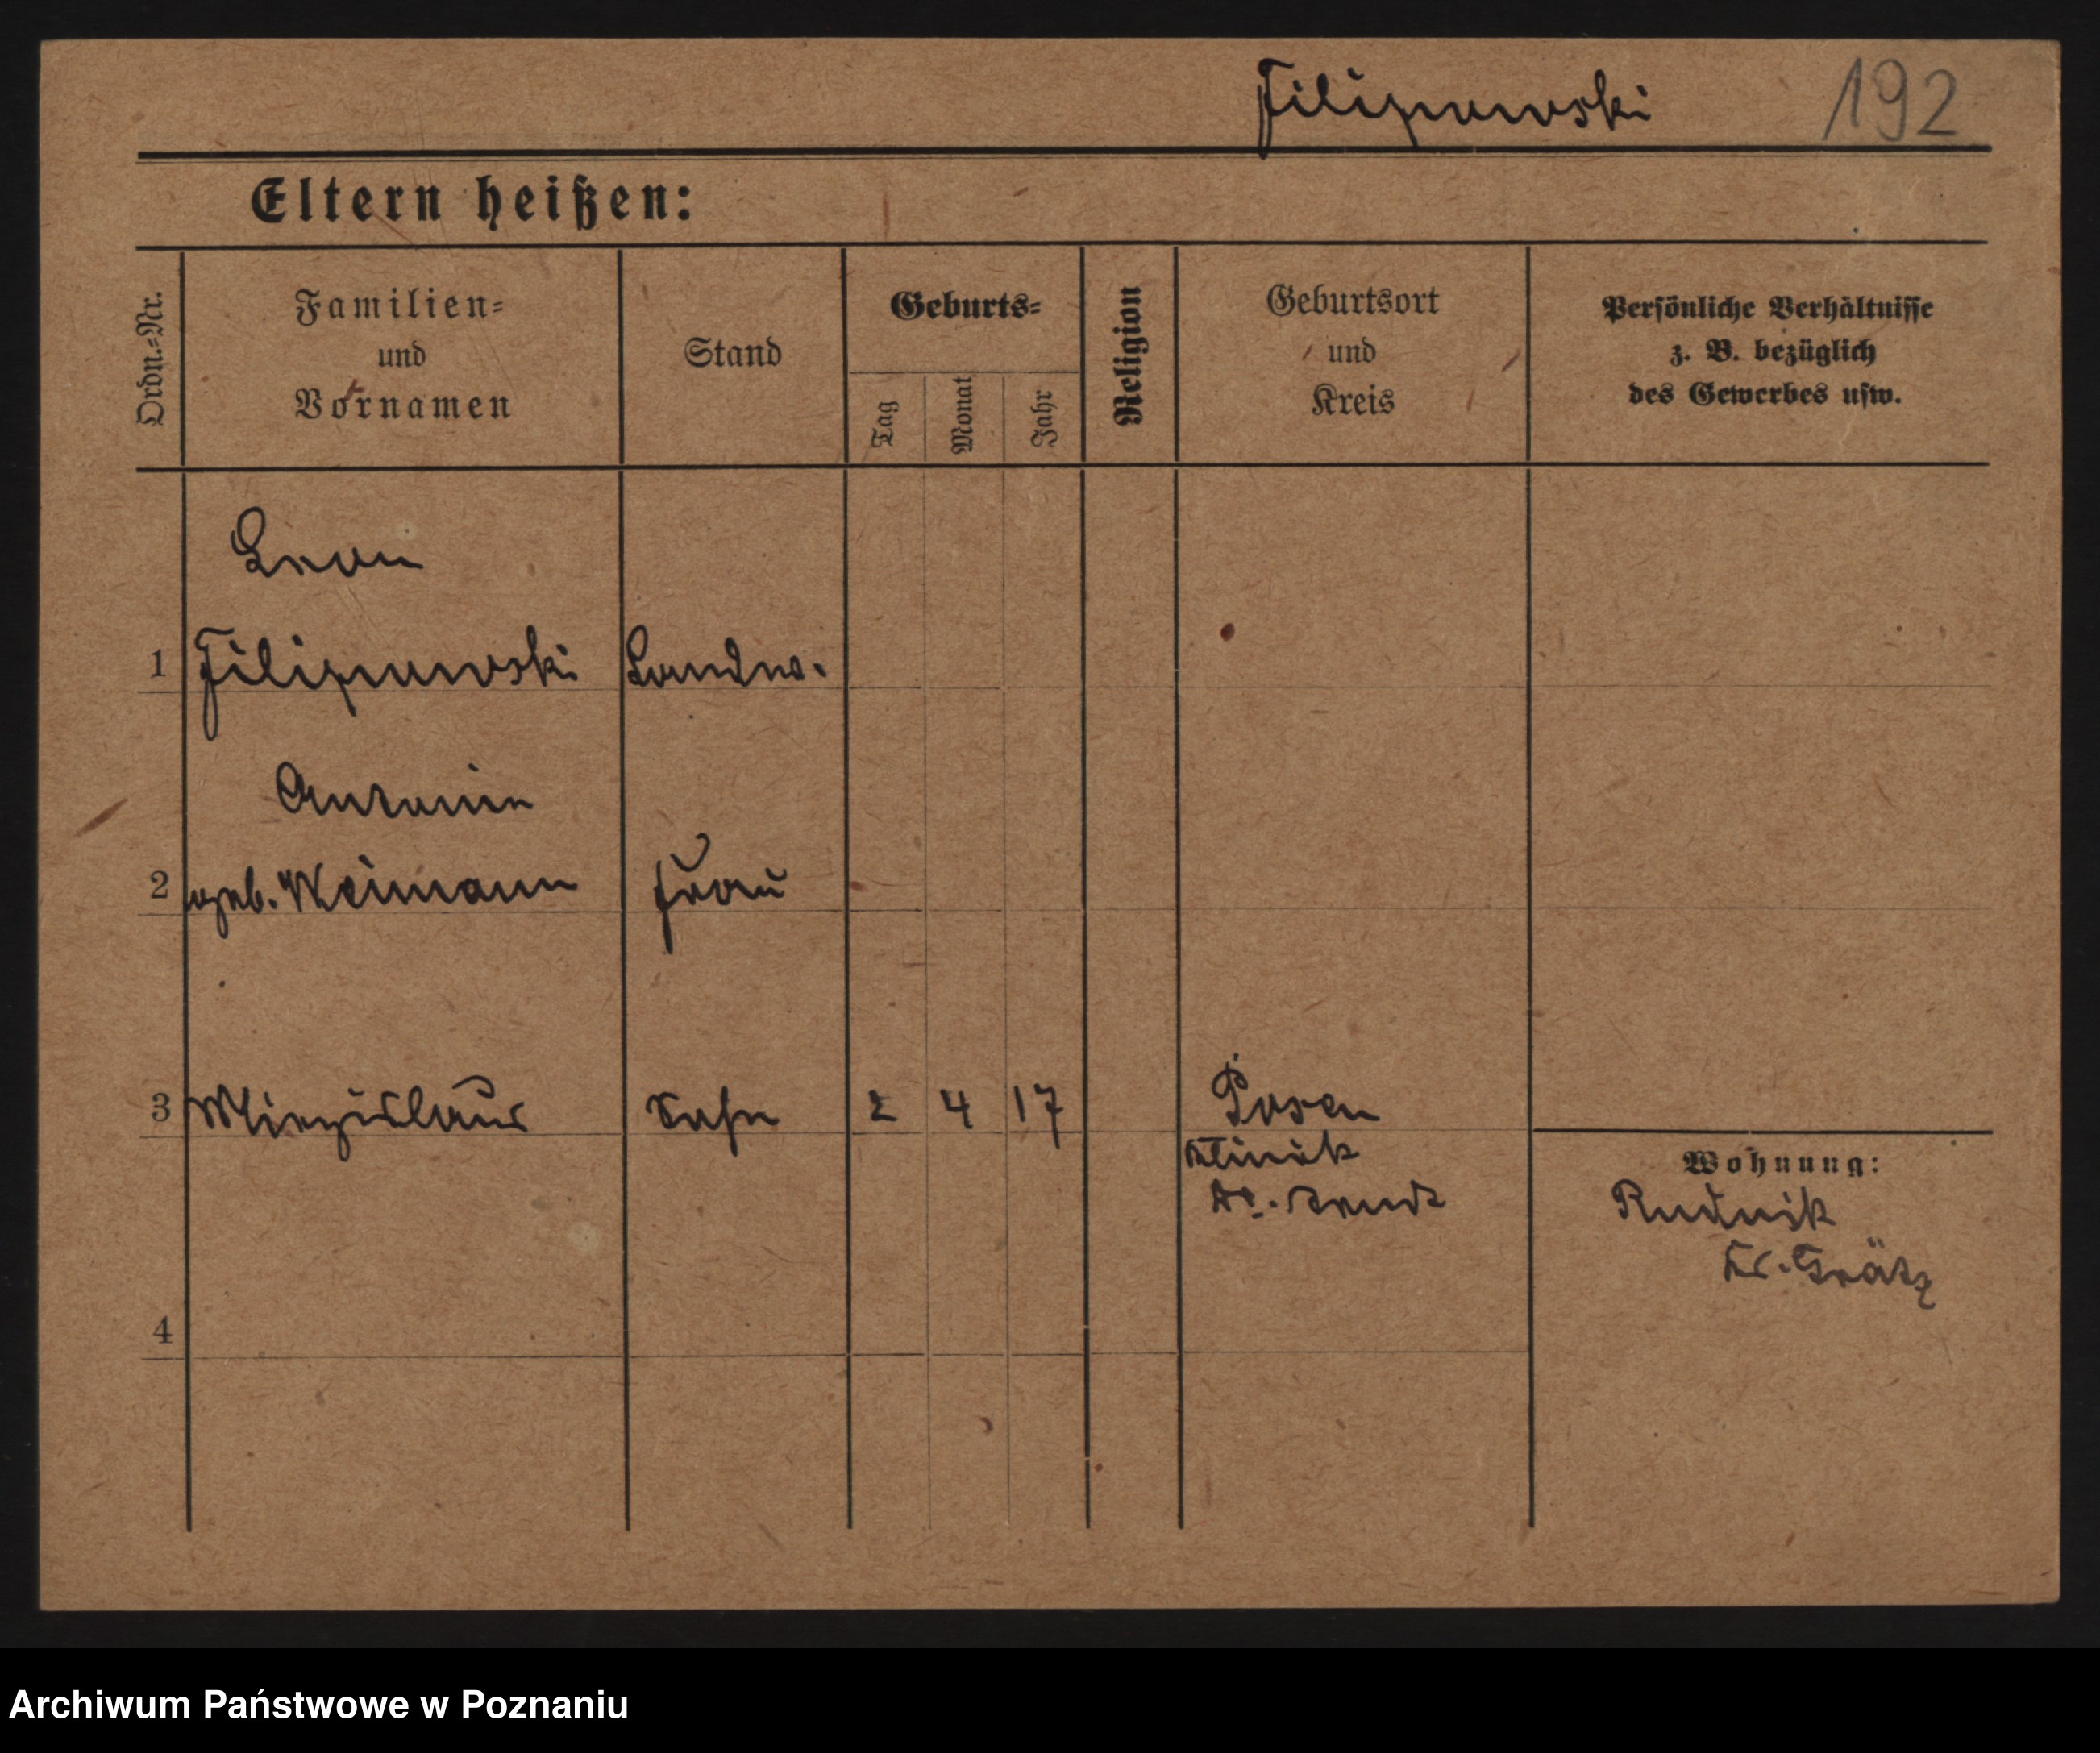 Filipowski 192
Eltern heißen:
Ordn.-Nr.
Familien-
und
Vornamen
Stand
Geburts-
Tag
Monat
Jahr
Religion
Geburtsort
und
Kreis
Persönliche Verhältnisse
z. B. bezüglich
des Gewerbes usw.
Leon
1 Filipowski Landw.
Antonie
2 geb. Weimann Frau
3 Miezislaus Sohn 2 4 17 Posen
Klinik
Dr.
Wohnung:
Rudnik
Kr. Grätz
4
Archiwum Państwowe w Poznaniu